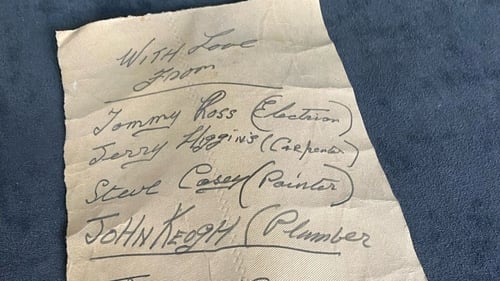 With Love
From
Tommy Ross (Electrion)
Jerry Higgins (Carpenter)
Steve Casey (Painter)
JOHN KEOGH (Plumber